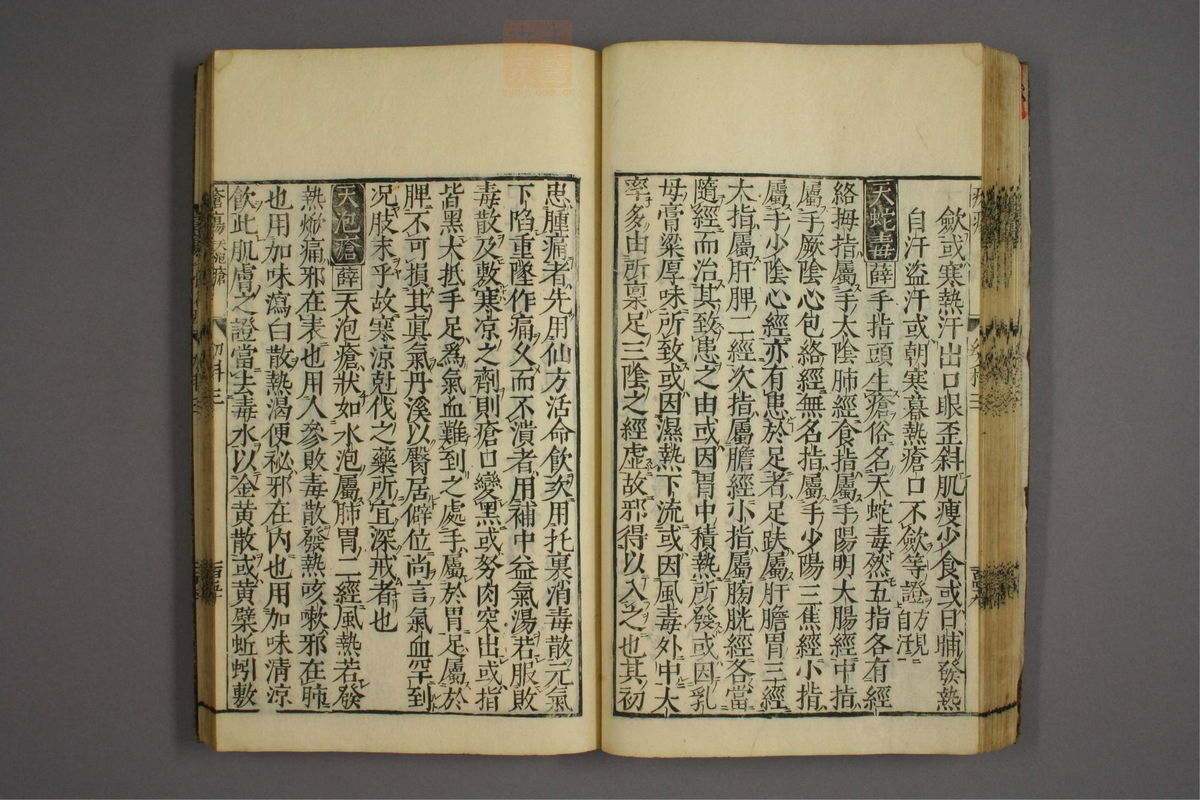 斂或寒熱汗出口眼歪斜肌瘦少食或日晡發熱
自汗盜汗或朝寒暮熱瘡口不斂等證方見自汗
天蛇毒 薛 手指頭生瘡俗名天蛇毒然五指各有經
絡拇指屬手太陰肺經食指屬手陽明大腸經中指
屬手厥陰心包絡經無名指屬手少陽三焦經小指
屬手少陰心經亦有患於足者足趺屬肝膽胃三經
大指屬肝脾二經次指屬膽經小指屬膀胱經各當
隨經而治其致患之由或因胃中積熱所發或因乳
母膏粱厚味所致或因濕熱下流或因風毒外中大
率多由所稟足三陰之經虛故邪得以入之也其初
患腫痛者先用仙方活命飲次用托裏消毒散元氣
下陷重墜作痛久而不潰者用補中益氣湯若服敗
毒散及敷寒凉之劑則瘡口變黑或努肉突出或指
皆黑大抵手足爲氣血難到之處手屬於胃足屬於
脾不可損其眞氣丹溪以臀居僻位尚言氣血罕到
况肢末乎故寒凉尅伐之藥所宜深戒者也
天泡瘡 薛 天泡瘡狀如水泡屬肺胃二經風熱若發
熱焮痛邪在表也用人參敗毒散發熱咳嗽邪在肺
也用加味瀉白散熱渴便祕邪在內也用加味清凉
飲此肌膚之證當去毒水以金黄散或黄蘗蚯蚓敷
瘡瘍 天泡瘡 幼科三